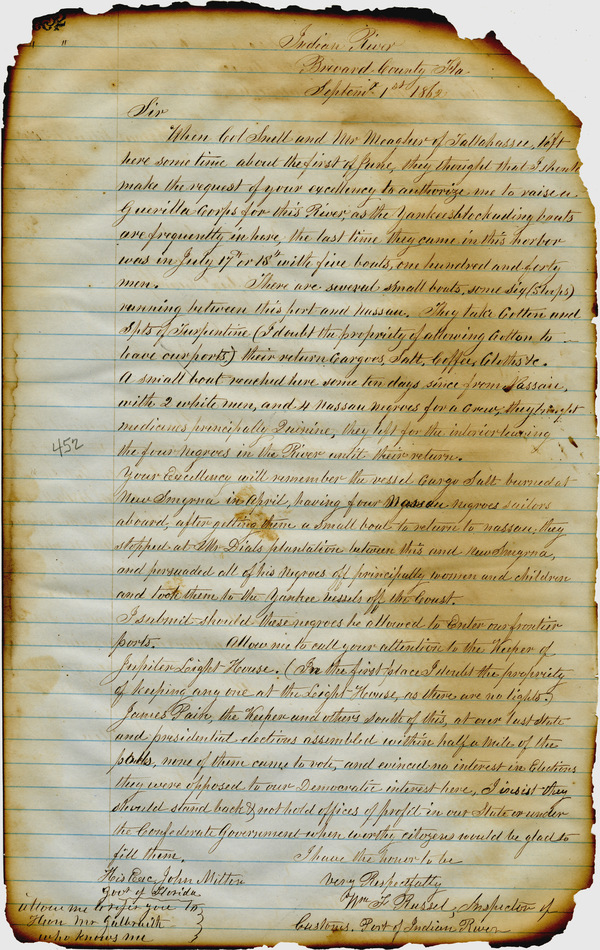 Indian River
Brevard County Fla
Septemr 1st 1862
Sir
When Col Snell and Mr Meagher of Tallahassee, left
here some time about the first of June, they thought that I should
make the request of your excellency to authorize me to raise a
Guerilla Corps for this River as the Yankees blockading boats
are frequently in here, the last time they came in this harbor
was in July 17th or 18th with five boats, one hundred and forty
men. There are several small boats, some six (Sloops)
running between this port and Nassau. They take Cotton and
Spts of Turpentine (I doubt the propriety of allowing Cotton to
leave our ports,) their return Cargoes, Salt, Coffee, Cloths &c.
A small boat reached here some ten days since from Nassau,
with 2 white men, and 4 Nassau negroes for a Crew, they brought
medicines principally Quinine, they left for the interior leaving
the four negroes in the River until their return.
Your Excellency will remember the vessel Cargo Salt burned at
New Smyrna in April, having four Nassau negroes sailors
aboard, after getting them a small boat to return to nassau, they
stopped at Mr Dials plantation between this and New Smyrna,
and persuaded all of his Negroes off principally women and children
and took them to the Yankee vessels off the Coast.
I submit should these negroes be allowed to Enter our frontier
ports. Allow me to call your attention to the Keeper of
Jupiter Light House. (In the first place I doubt the propriety
of keeping any one at the Light House, as there are no lights.)
James Pain, the Keeper and others south of this, at our last State
and presidential elections assembled within half a mile of the
polls, none of them came to vote, and evinced no interest in Elections
they were opposed to our Democratic interest here, I insist they
should stand back & not hold offices of profit in our State or under
the Confederate Government when worthy citizens would be glad to
fill them. I have the honor to be
His Exc. John Milton Very Respectfully
Govr of Florida Wm F Russel, Inspector of
allow me to refer you to Customs. Port of Indian River
Hon Mr Galbraith
who knows me
452